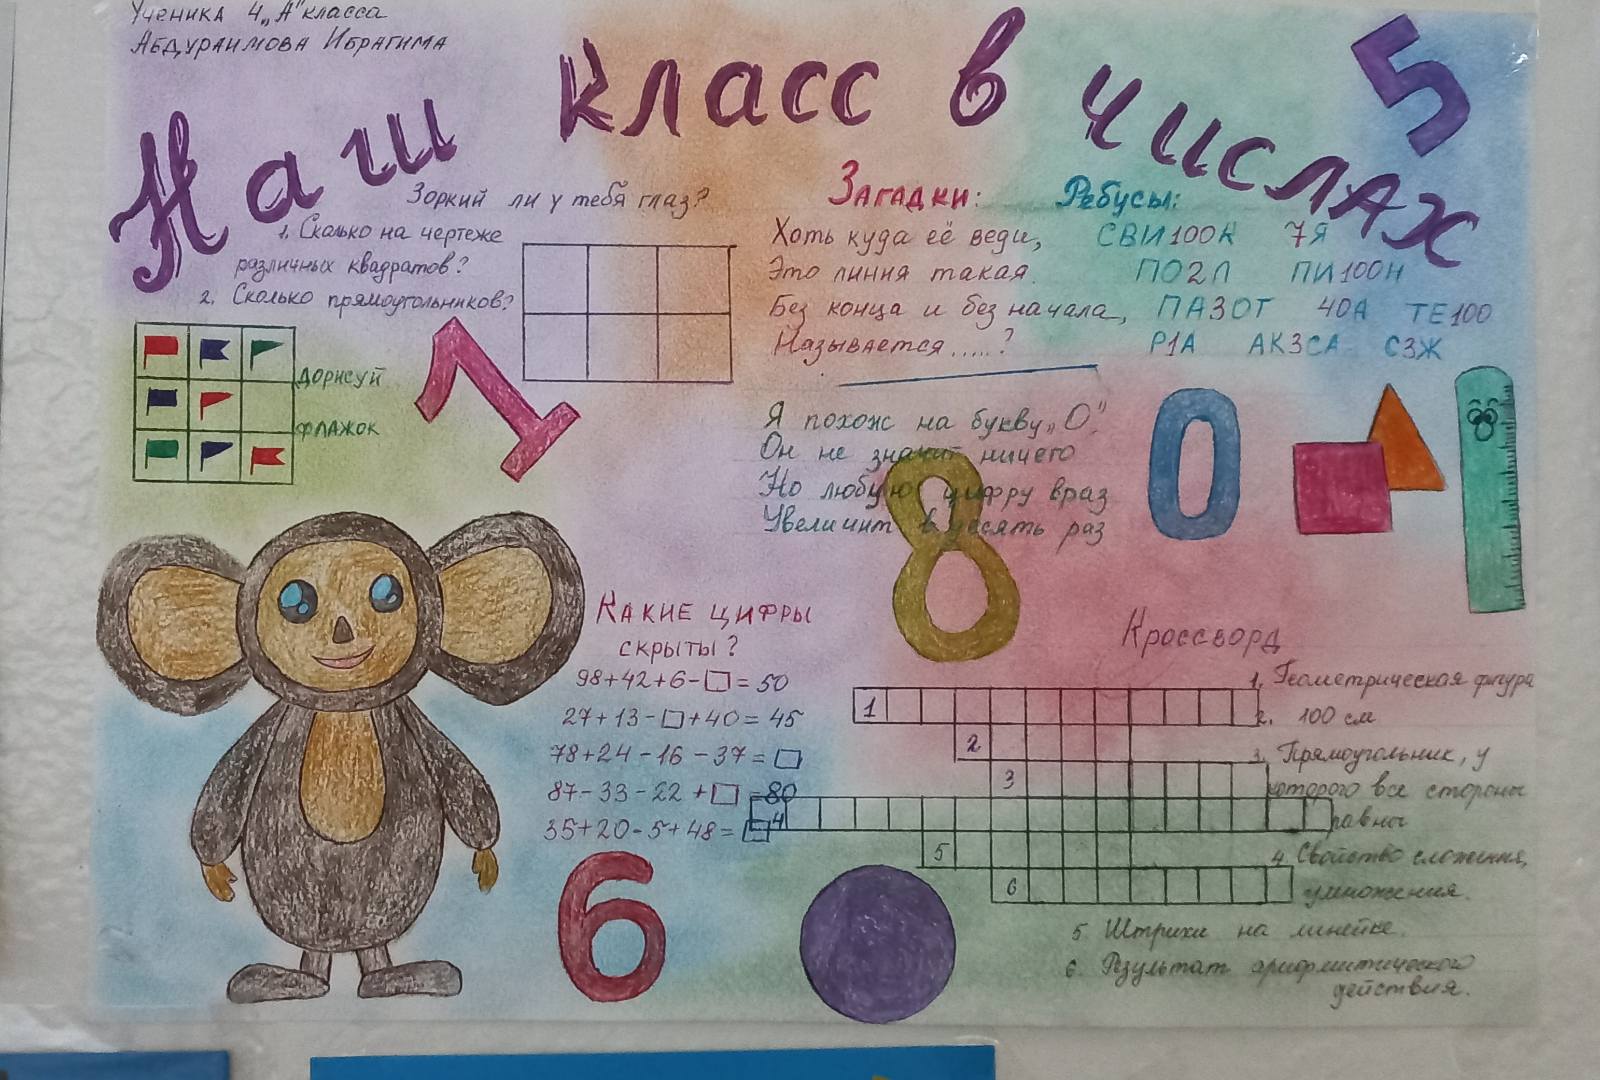 Ученика 4„А" класса
Абдураимова Ибрагима
Наш класс в числах
5
Зоркий ли у тебя глаз?
1. Сколько на чертеже
различных квадратов?
2. Сколько прямоугольников?
дорисуй
флажок
1
Загадки:
Хоть куда её веди,
Это линия такая.
Без конца и без начала,
Называется.....?
Ребусы:
СВИ100К 7Я
ПО2Л ПИ100Н
ПА3ОТ 40А ТЕ100
Р1А АК3СА С3Ж
Я похож на букву „О".
Он не значит ничего
Но любую цифру враз
Увеличит в десять раз
8
0
Какие цифры
скрыты?
98+42+6-□=50
27+13-□+40=45
78+24-16-37=□
87-33-22+□=80
35+20-5+48=□
6
Кроссворд
1
2
3
4
5
6
1. Геометрическая фигура
2. 100 см
3. Прямоугольник, у
которого все стороны
равны
4. Свойство сложения,
умножения.
5. Штрихи на линейке.
6. Результат арифметического
действия.